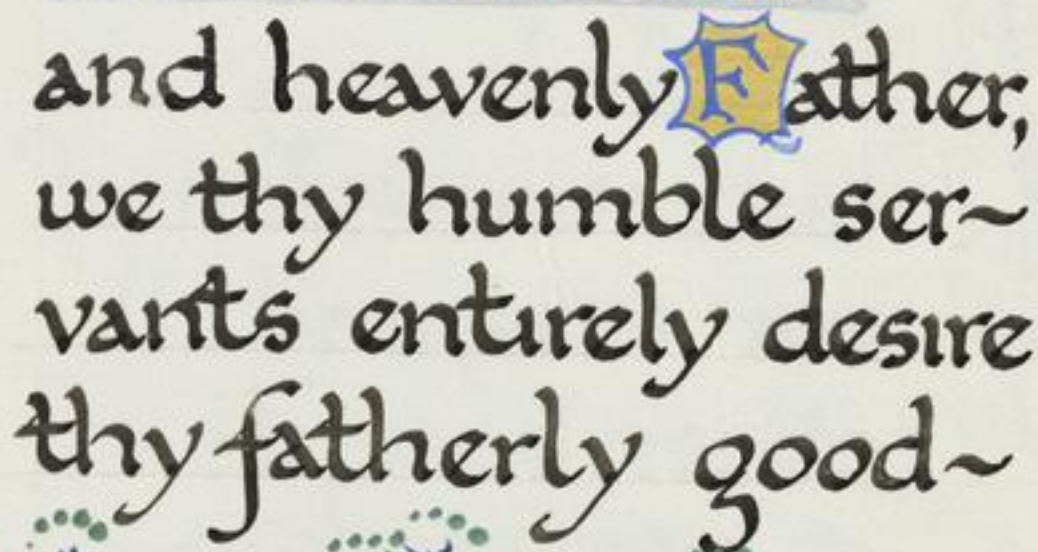 and heavenly Father,
we thy humble ser~
vants entirely desire
thy fatherly good~